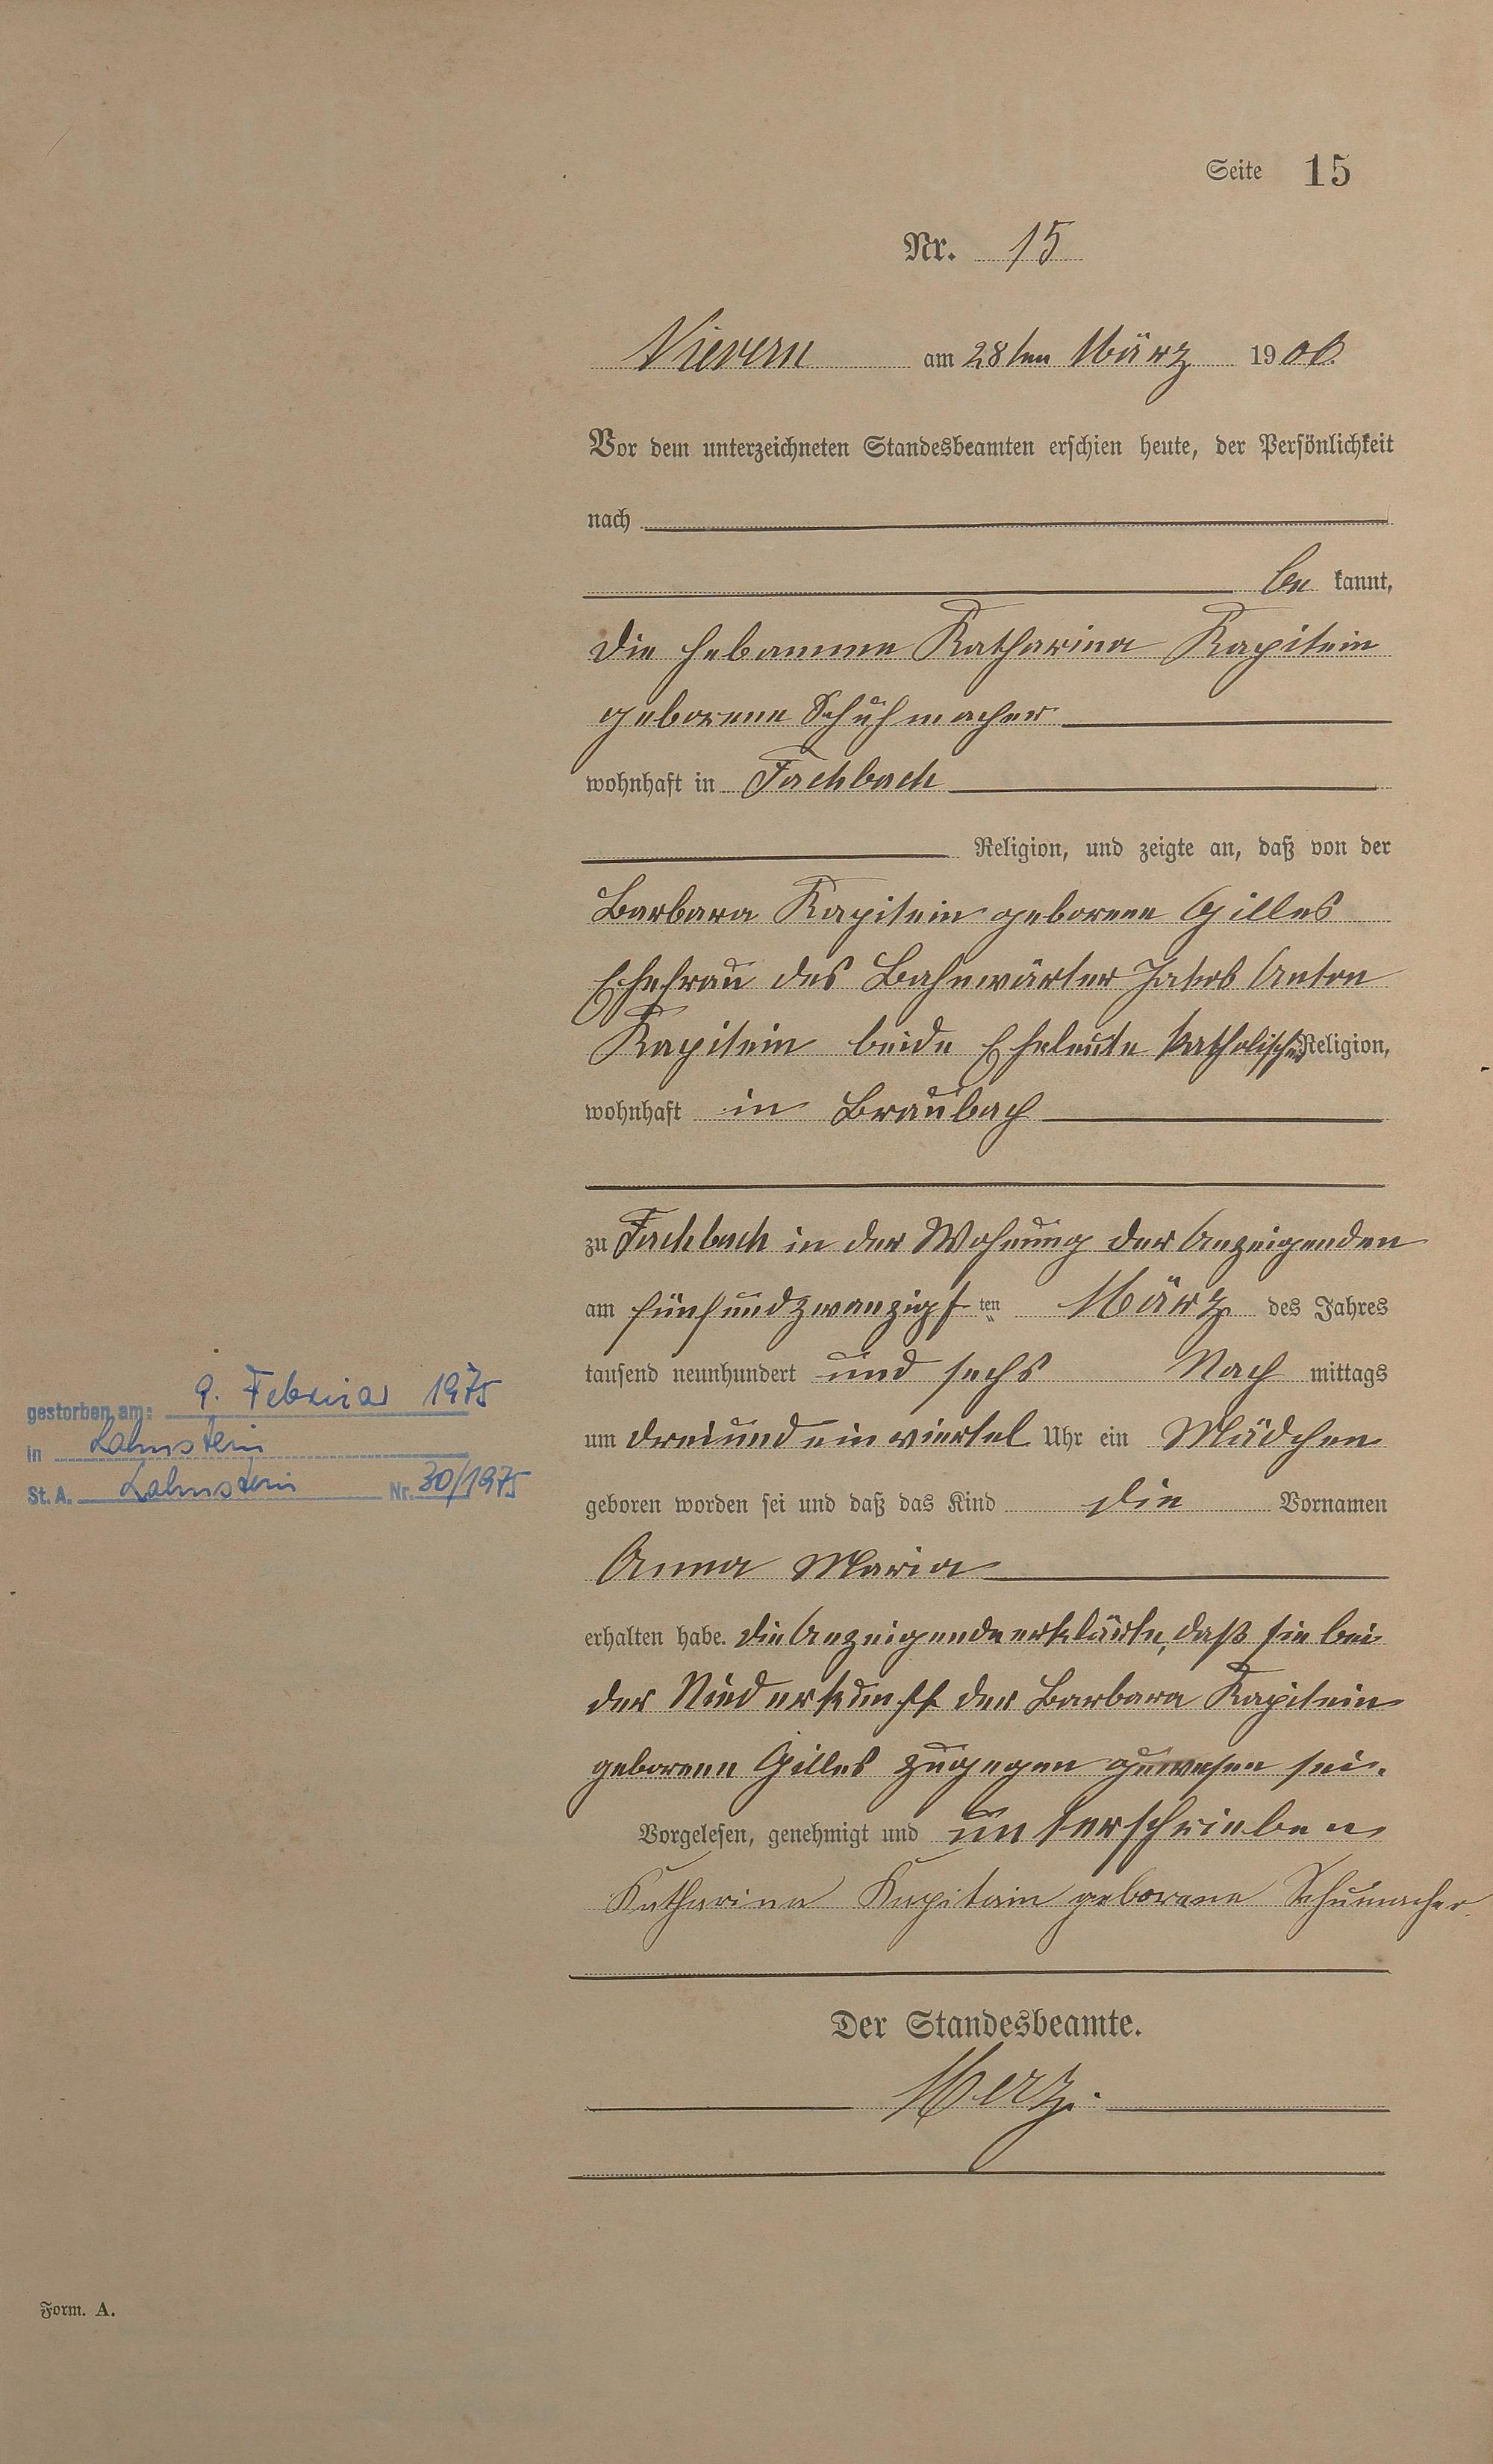 Seite 15
Nr. 15
Nievern am 28ten März 1906.
Vor dem unterzeichneten Standesbeamten erschien heute, der Persönlichkeit
nach
be kannt,
die Hebamme Katharina Kapitein
geborene Schuhmacher
wohnhaft in Fachbach
Religion, und zeigte an, daß von der
Barbara Kapitein geborene Gilles
Ehefrau des Bahnwärter Jakob Anton
Kapitein beide Eheleute katholischer Religion,
wohnhaft in Braubach
zu Fachbach in der Wohnung der Anzeigenden
am fünfundzwanzigsten März des Jahres
tausend neunhundert und sechs Nach mittags
um dreiundeinviertel Uhr ein Mädchen
geboren worden sei und daß das Kind die Vornamen
Anna Maria
erhalten habe. Die Anzeigende erklärte, daß sie bei
der Niederkunft der Barbara Kapitein
geborene Gilles zugegen gewesen sei.
Vorgelesen, genehmigt und unterschrieben
Katharina Kapitain geborene Schumacher.
Der Standesbeamte.
Merz.
gestorben am: 9. Februar 1975
in Lahnstein
St. A. Lahnstein Nr. 30/1975
Form. A.